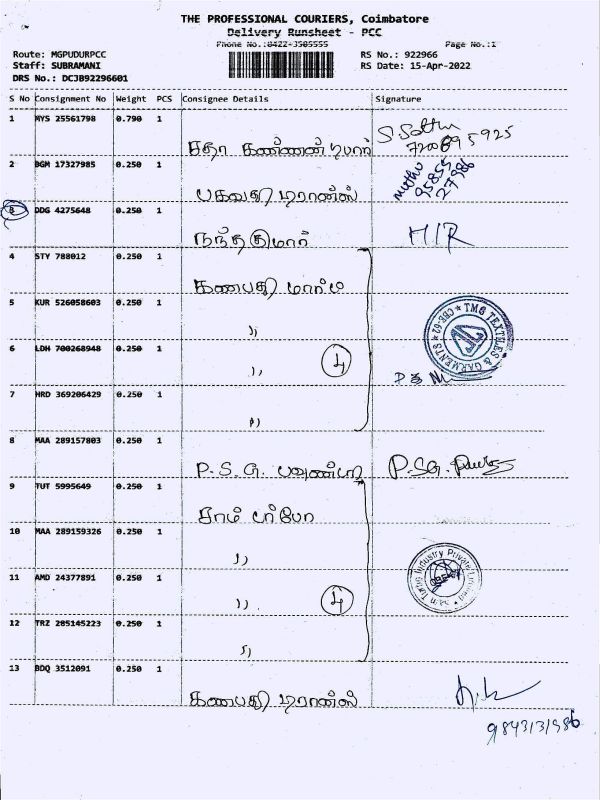 THE PROFESSIONAL COURIERS, Coimbatore
Delivery Runsheet - PCC
Phone No.:0422-3505555 Page No.:1
Route: MGPUDURPCC RS No.: 922966
Staff: SUBRAMANI RS Date: 15-Apr-2022
DRS No.: DCJB92296601
S No Consignment No Weight PCS Consignee Details Signature
1 MYS 25561798 0.790 1
சதா கண்ணன்
2 BGM 17327985 0.250 1
பகவதி டிரான்ஸ்
3 DDG 4275648 0.250 1
நந்தகுமார் M/R
4 STY 788012 0.250 1
கணபதி மார்ம
5 KUR 526058603 0.250 1
TMG TEXTILES & GARMENTS CBE-02
6 LDH 700268948 0.250 1
4
7 HRD 369206429 0.250 1
8 MAA 289157803 0.250 1
P.S.G. பவுண்டரி P.SG.
9 TUT 5995649 0.250 1
சாம் டர்போ
10 MAA 289159326 0.250 1
11 AMD 24377891 0.250 1
4 Sam Turbo Industry Private Limited
12 TRZ 285145223 0.250 1
13 BDQ 3512091 0.250 1
கணபதி டிரான்ஸ்
9843131986